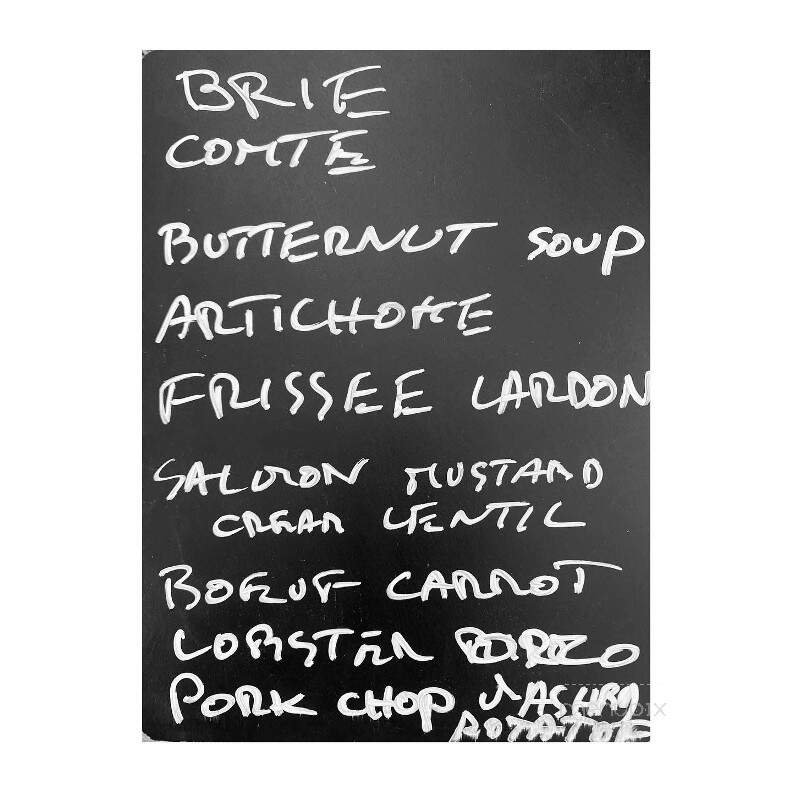 BRIE
COMTE
BUTTERNUT SOUP
ARTICHOKE
FRISSEE LARDON
SALMON MUSTARD
CREAM LENTIL
BOEUF CARROT
LOBSTER
PORK CHOP MASHED
POTATOE